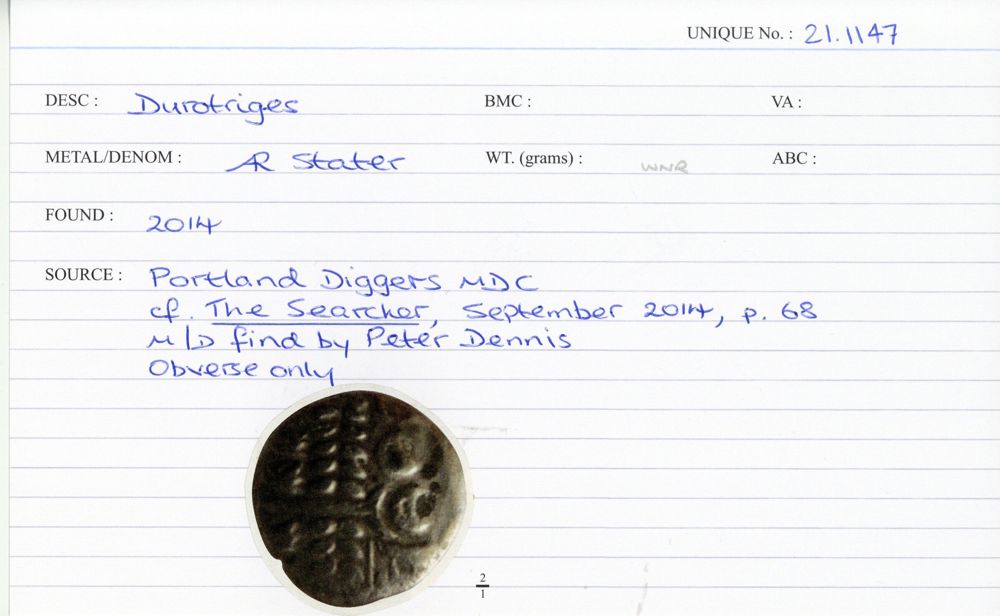 UNIQUE No. : 21.1147
DESC : Durotriges BMC : VA :
METAL/DENOM : AR Stater WT. (grams) : WNR ABC :
FOUND : 2014
SOURCE : Portland Diggers MDC
cf. The Searcher, September 2014, p. 68
M/D find by Peter Dennis
Obverse only
2
1